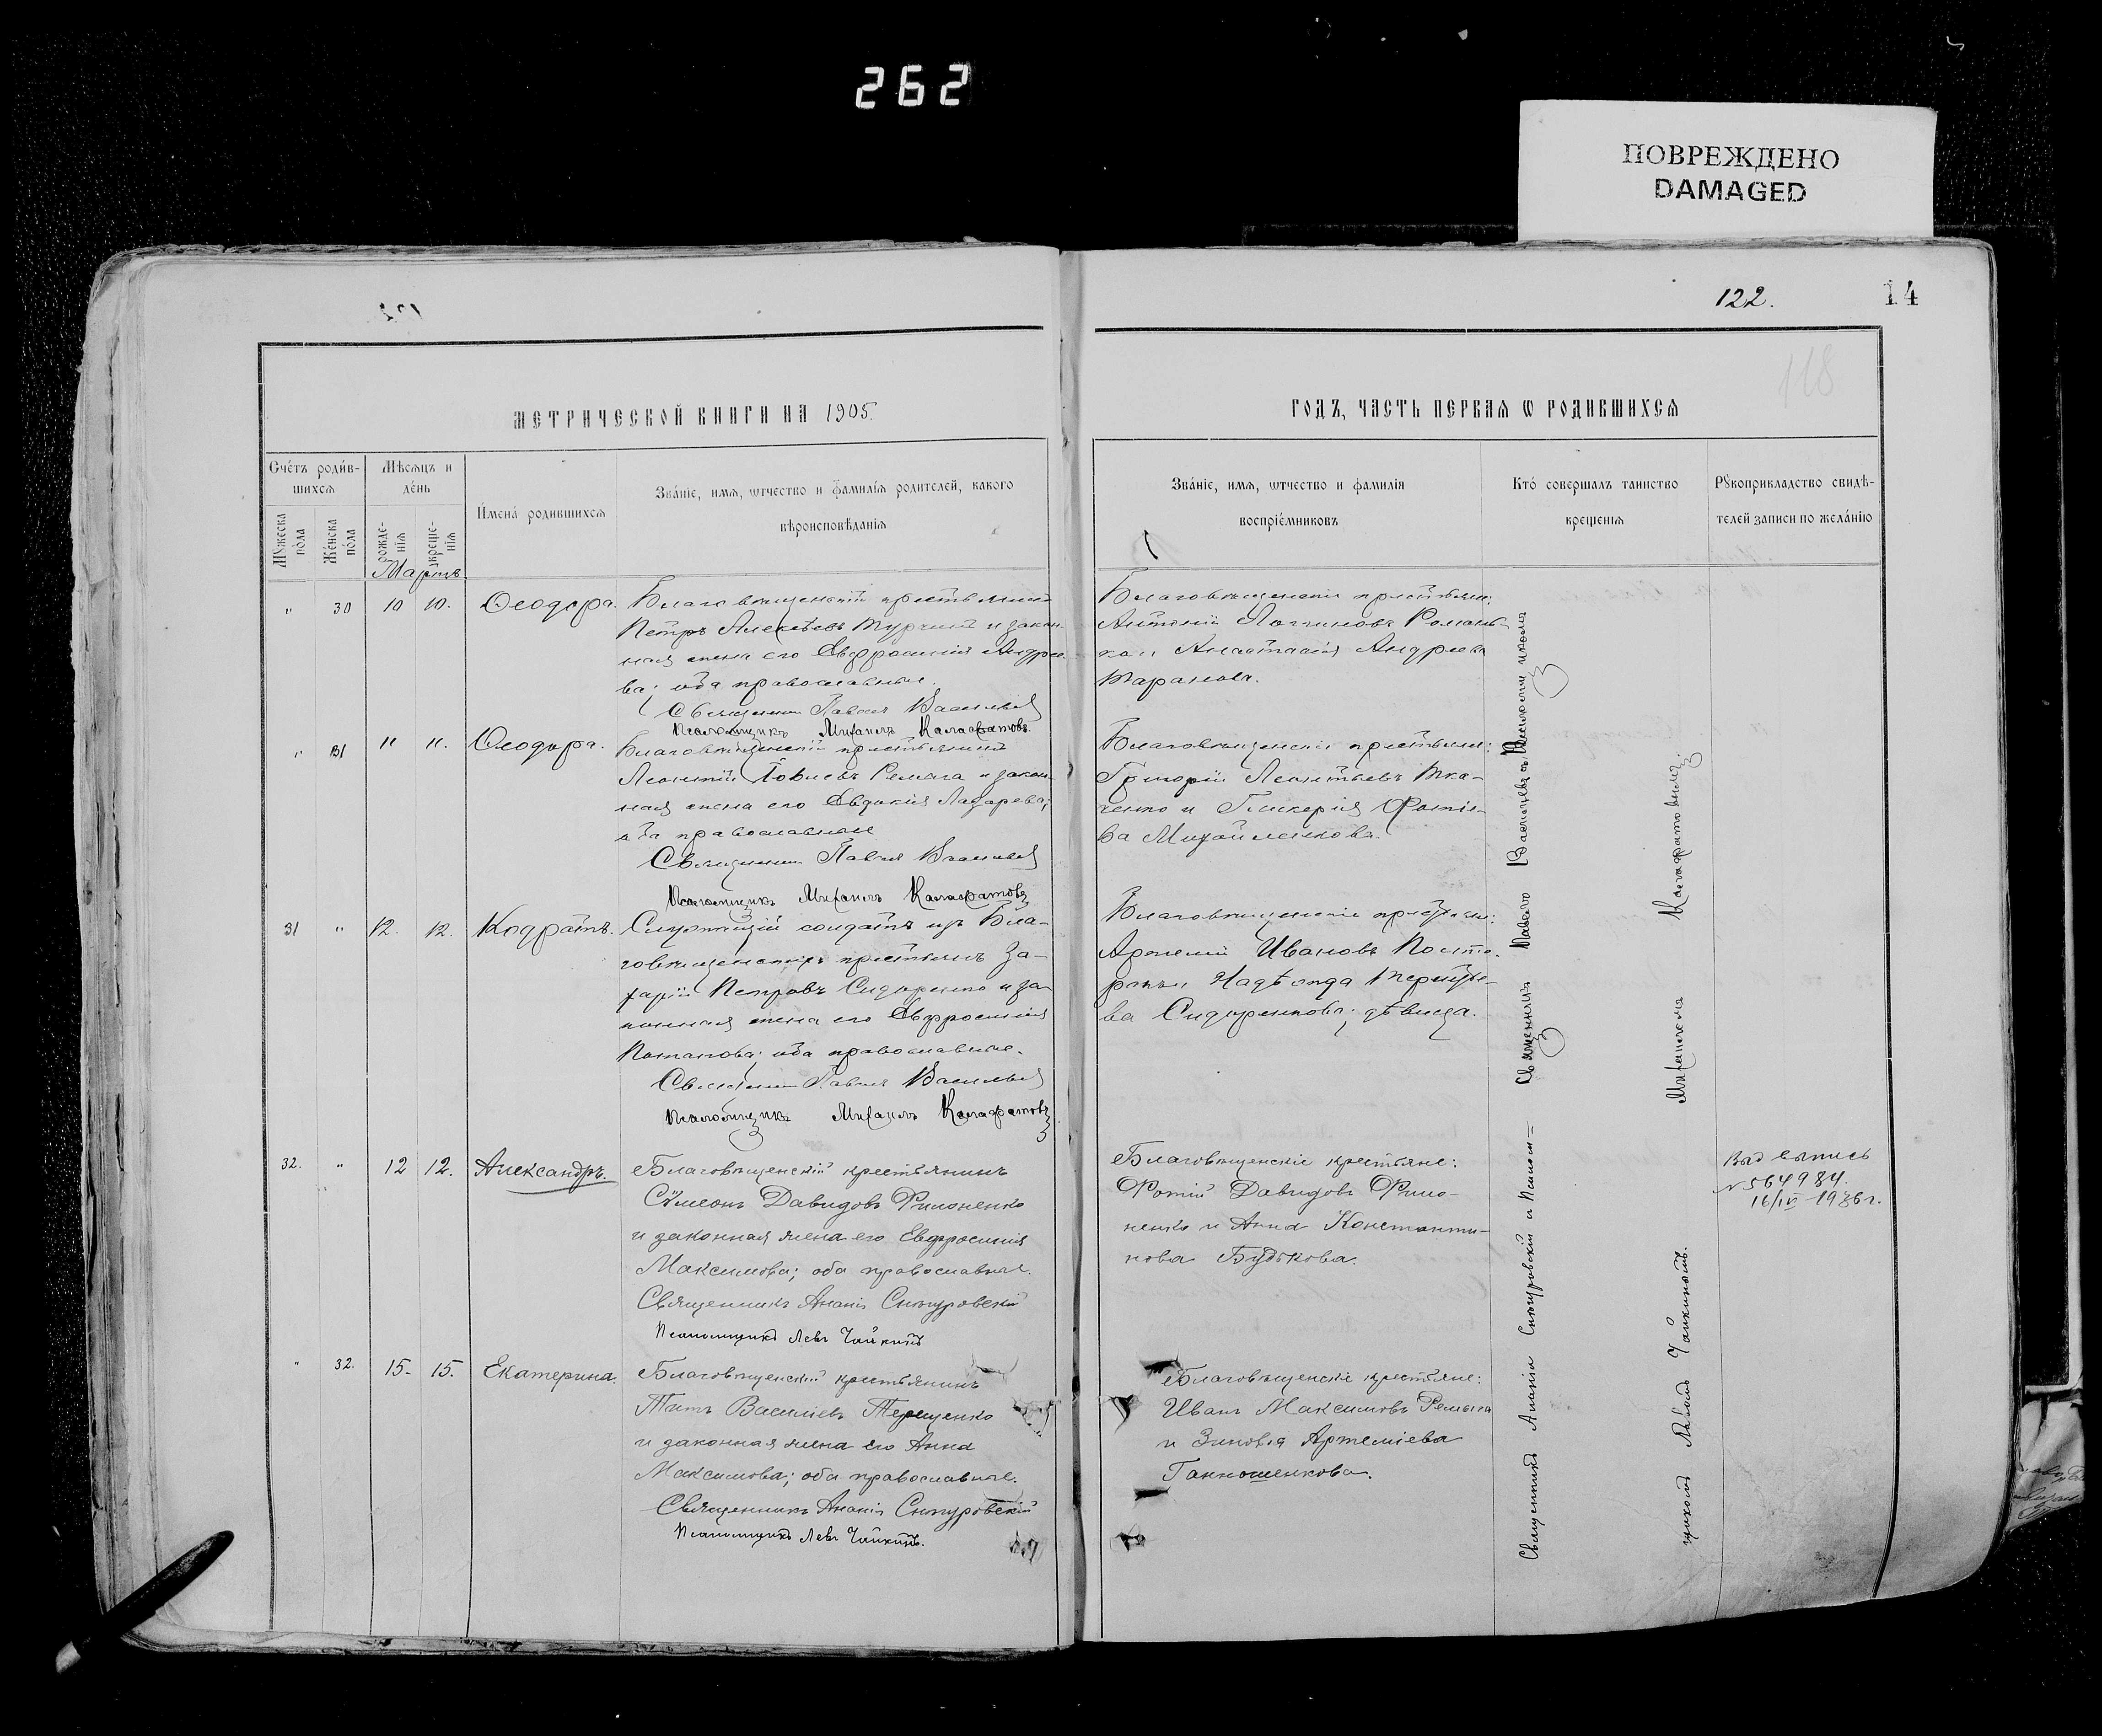 262
ПОВРЕЖДЕНО
DAMAGED
122.
14
118
МЕТРИЧЕСКОЙ КНИГИ НА 1905.
ГОДЪ, ЧАСТЬ ПЕРВАѦ Ѡ РОДИВШИХСѦ
Счётъ роди́в-
шихсѧ
Мѣсѧцъ и
де́нь
Мꙋжеска по́ла
Же́нска по́ла
рожде-
нїѧ
креще-
нїѧ
И́мена́ родившихсѧ
Зва́нїе, имѧ, ѡтчество и фамилїѧ родителей, какого
вѣроисповѣданїѧ
Зва́нїе, имѧ, ѡтчество и фамилїѧ
воспрїе́мниковъ
Кто́ совершалъ таинство
крещенїѧ
Рꙋкоприкладство свидѣ-
телей записи по жела́нїю
Мартъ.
" 30 10 10. Ѳеодора.
Благовѣщенскій крестьянинъ
Петръ Алексѣевъ Турчинъ и закон-
ная жена его Евфросинія Андрее-
ва; оба православные.
Священникъ Павелъ Васильевъ
Псаломщикъ Михаилъ Калафатовъ
Благовѣщенскіе крестьяне:
Антоній Логгиновъ Романь-
ко и Анастасія Андреева
Таранова.
" 31 11 11. Ѳеодора.
Благовѣщенскій крестьянинъ
Леонтій Іовлевъ Ремыга и закон-
ная жена его Евдокія Лазарева;
оба православные
Священникъ Павелъ Васильевъ
Псаломщикъ Михаилъ Калафатовъ
Благовѣщенскіе крестьяне:
Григорій Леонтьевъ Тка-
ченко и Гликерія Фотіе-
ва Михайленкова.
31 " 12. 12. Кодратъ.
Служащій солдатъ изъ Бла-
говѣщенскихъ крестьянъ За-
харій Петровъ Сидоренко и за-
конная жена его Евфросинія
Потапова; оба православные.
Священникъ Павелъ Васильевъ
Псаломщикъ Михаилъ Калафатовъ
Благовѣщенскіе крестьяне:
Артемій Ивановъ
Надежда
ва Сидоренкова; дѣвица.
Священникъ Павелъ Васильевъ съ Псаломщикомъ
Михаиломъ Калафатовымъ
32. " 12 12. Александръ.
Благовѣщенскій крестьянинъ
Сѷмеонъ Давидовъ Филоненко
и законная жена его Евфросинія
Максимова; оба православные.
Священникъ Ананія Снѣгуровскій
Псаломщикъ Левъ Чайкинъ
Благовѣщенскіе крестьяне:
Фотій Давидовъ Фило-
ненко и Анна Константи-
нова Будькова.
Выд выпись
№ 564984.
16/IV 1936 г.
" 32. 15. 15. Екатерина.
Благовѣщенскій крестьянинъ
Титъ Василіевъ Терещенко
и законная жена его Анна
Максимова; оба православные.
Священникъ Ананія Снѣгуровскій
Псаломщикъ Левъ Чайкинъ.
Благовѣщенскіе крестьяне:
Иванъ Максимовъ Ремыга
и Зиновія Артеміева
Ганношенкова.
Священникъ Ананія Снѣгуровскій и Псалом-
щикомъ Львомъ Чайкинымъ.